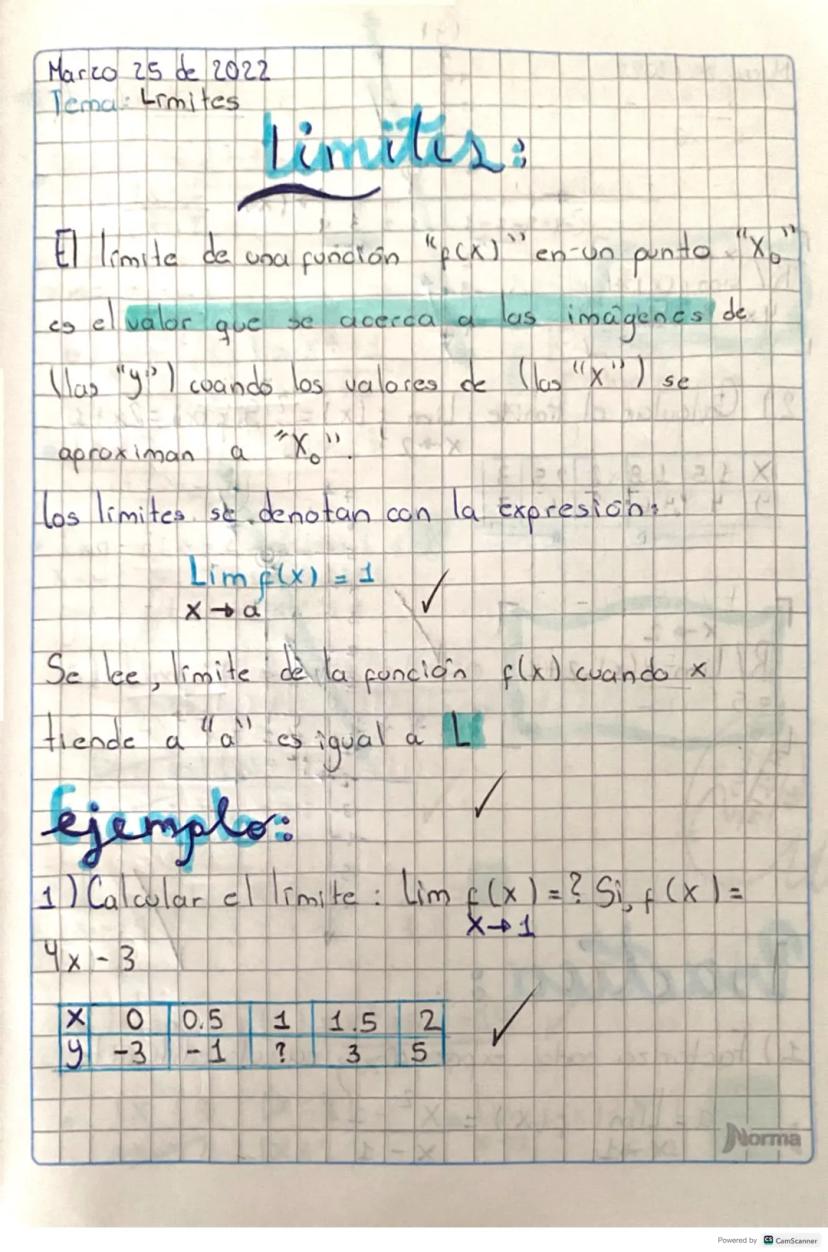 Marzo 25 de 2022
Tema: Límites
Límites:
El límite de una función "f(x)" en un punto "X₀"
es el valor que se acerca a las imágenes de
(las "y") cuando los valores de (las "X") se
aproximan a "X₀".
Los límites se denotan con la expresión:
Lim f(x) = 1
x → a
Se lee, límite de la función f(x) cuando x
tiende a "a" es igual a L
Ejemplo:
1) Calcular el límite: Lim f(x) = ? Si, f(x) =
X → 1
4x - 3
X 0 0.5 1 1.5 2
y -3 -1 ? 3 5
Norma
Powered by CS CamScanner